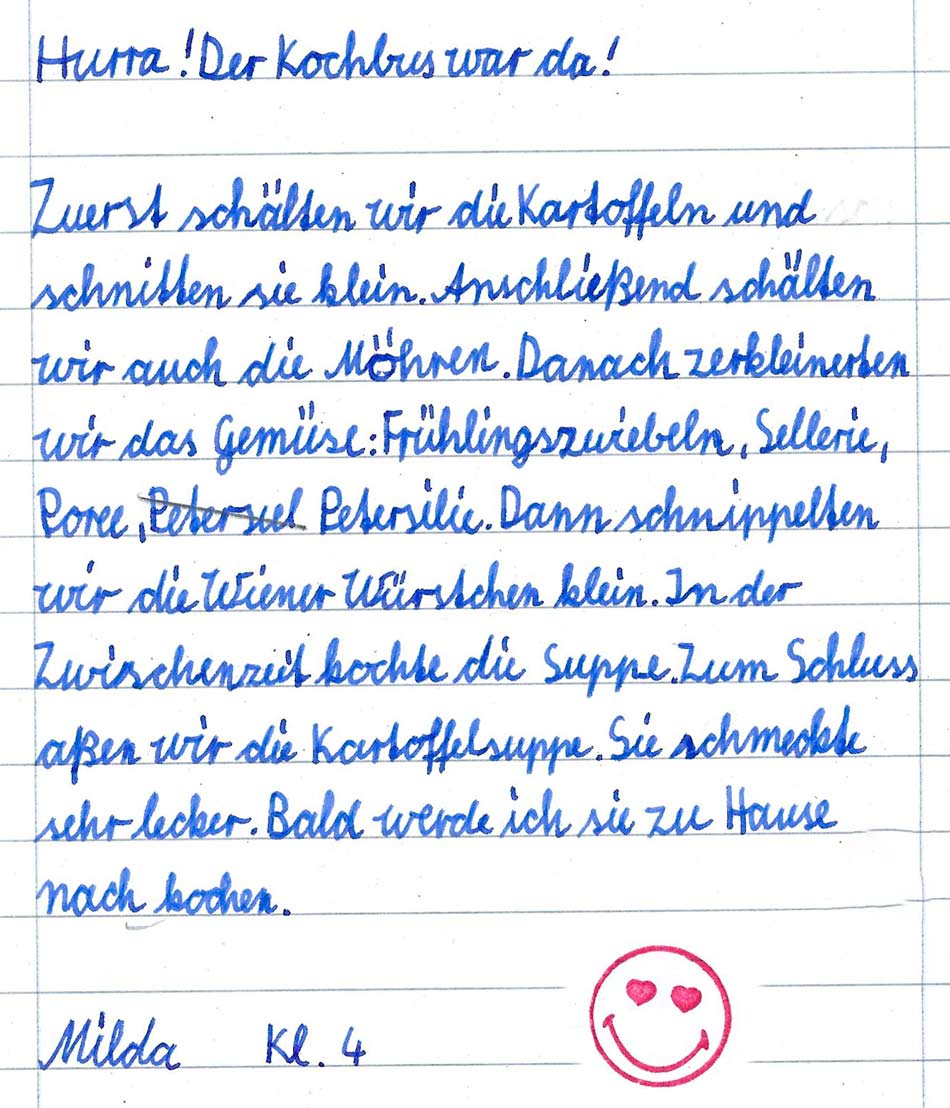 Hurra! Der Kochbus war da!
Zuerst schälten wir die Kartoffeln und
schnitten sie klein. Anschließend schälten
wir auch die Möhren. Danach zerkleinerten
wir das Gemüse: Frühlingszwiebeln, Sellerie,
Poree, Petersiel Petersilie. Dann schnippelten
wir die Wiener Würstchen klein. In der
Zwischenzeit kochte die Suppe. Zum Schluss
aßen wir die Kartoffelsuppe. Sie schmeckte
sehr lecker. Bald werde ich sie zu Hause
nach kochen.
Milda Kl. 4